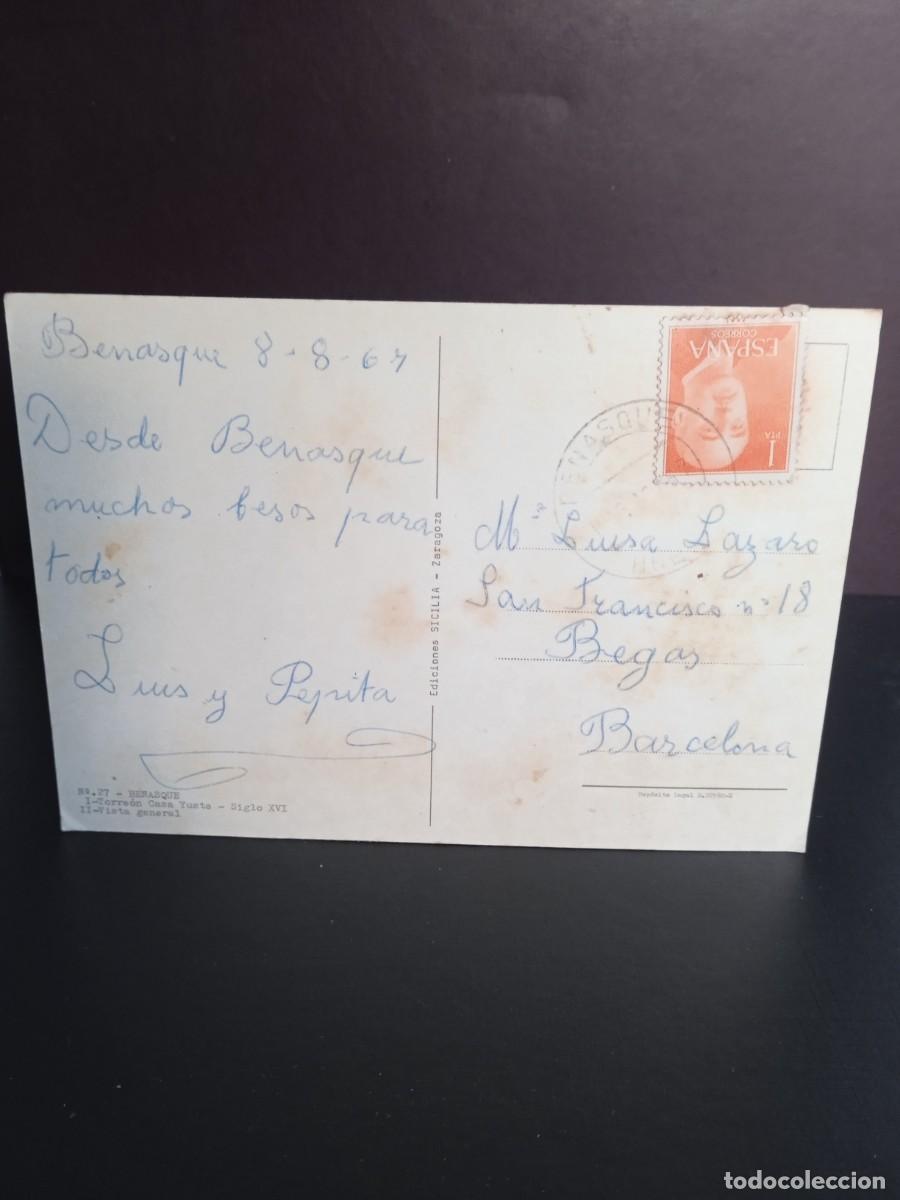 Benasque 8-8-67
Desde Benasque
muchos besos para
todos
Luis y Pepita
Nº.27 - BENASQUE
I-Torreón Casa Yuste - Siglo XVI
II-Vista general
Ediciones SICILIA - Zaragoza
ESPAÑA
CORREOS
1
PTA
BENASQUE
Mª Luisa Lazaro
San Francisco nº 18
Begas
Barcelona
Depósito legal
todocoleccion